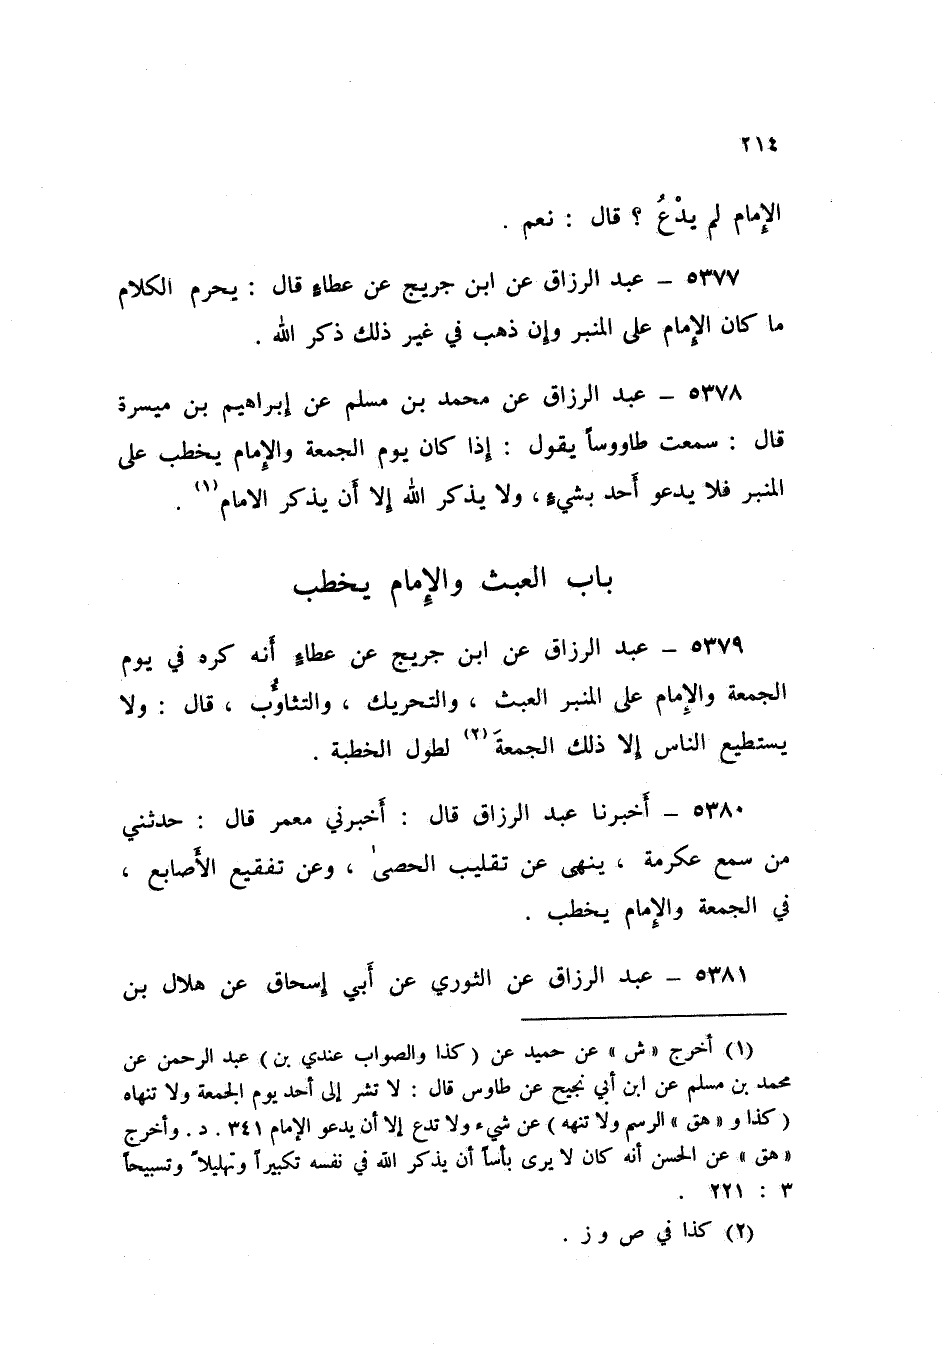 ٢١٤
الإِمام لم يدْعُ ؟ قال : نعم .
٥٣٧٧ – عبد الرزاق عن ابن جريج عن عطاءٍ قال : يحرم الكلام
ما كان الإِمام على المنبر وإن ذهب في غير ذلك ذكر الله .
٥٣٧٨ – عبد الرزاق عن محمد بن مسلم عن إبراهيم بن ميسرة
قال : سمعت طاووساً يقول : إذا كان يوم الجمعة والإِمام يخطب على
المنبر فلا يدعو أَحد بشيءٍ ، ولا يذكر الله إلا أَن يذكر الامام (١) .
باب العبث والإِمام يخطب
٥٣٧٩ – عبد الرزاق عن ابن جريج عن عطاءٍ أَنه كره في يوم
الجمعة والإِمام على المنبر العبث ، والتحريك ، والتثاوُّب ، قال : ولا
يستطيع الناس إلا ذلك الجمعةَ (٢) لطول الخطبة .
٥٣٨٠ – أَخبرنا عبد الرزاق قال : أَخبرني معمر قال : حدثني
من سمع عكرمة ، ينهى عن تقليب الحصىٰ ، وعن تفقيع الأَصابع ،
في الجمعة والإِمام يخطب .
٥٣٨١ – عبد الرزاق عن الثوري عن أَبي إسحاق عن هلال بن
(١) أخرج « ش » عن حميد عن ( كذا والصواب عندي بن ) عبد الرحمن عن
محمد بن مسلم عن ابن أبي نجيح عن طاوس قال : لا تشر إلى أحد يوم الجمعة ولا تنهاه
( كذا و « هق » الرسم ولا تنهه ) عن شيء ولا تدع إلا أن يدعو الإمام ٣٤١ . د . وأخرج
« هق » عن الحسن أنه كان لا يرى بأساً أن يذكر الله في نفسه تكبيراً وتهليلاً وتسبيحاً
٣ : ٢٢١ .
(٢) كذا في ص و ز .